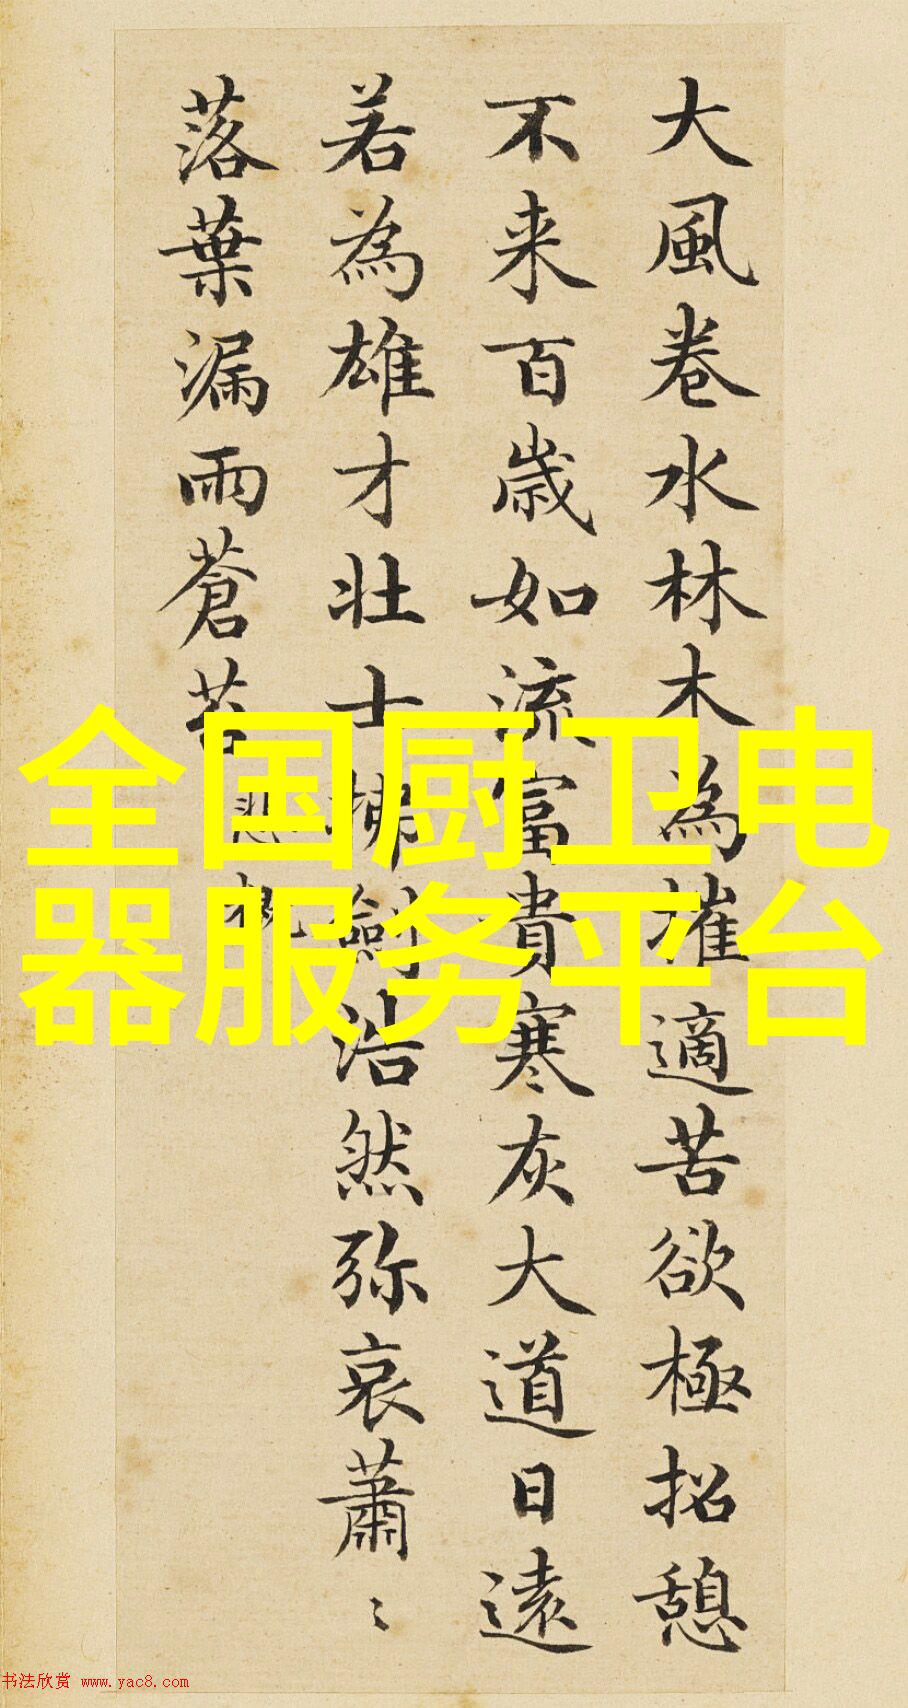 大風卷水林木為摧適苦欲極招憩
不来百歲如流富貴寒灰大道日遠
若為雄才壯士拂劍浩然弥哀蕭〻
落葉漏雨蒼苔
全国厨卫电
器服务平台
书法欣赏 www.yac8.com